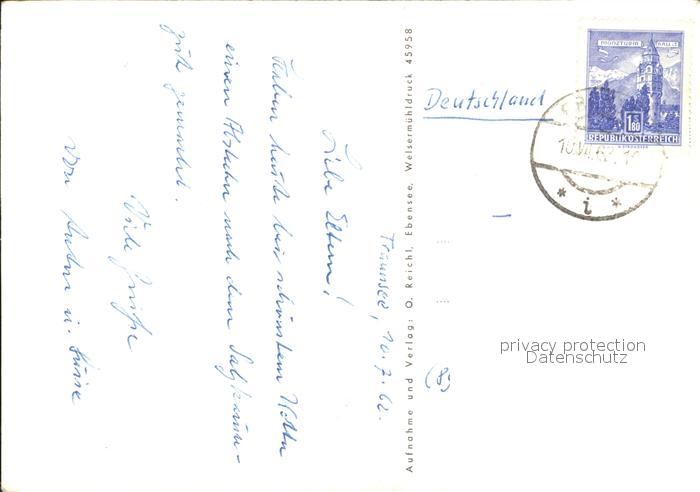 Traunsee, 10.7.62.
Liebe Eltern!
Haben heute bei schönstem Wetter
einen Abstecher nach dem Salzkammer-
gut gemacht.
Viele Grüße
von
u.
Aufnahme und Verlag: O. Reichl, Ebensee, Welsermühldruck 45958
Deutschland
MÜNZTURM HALL i. T.
1.80
S
REPUBLIK ÖSTERREICH
10.VII.62
* i *
(8)
privacy protection
Datenschutz